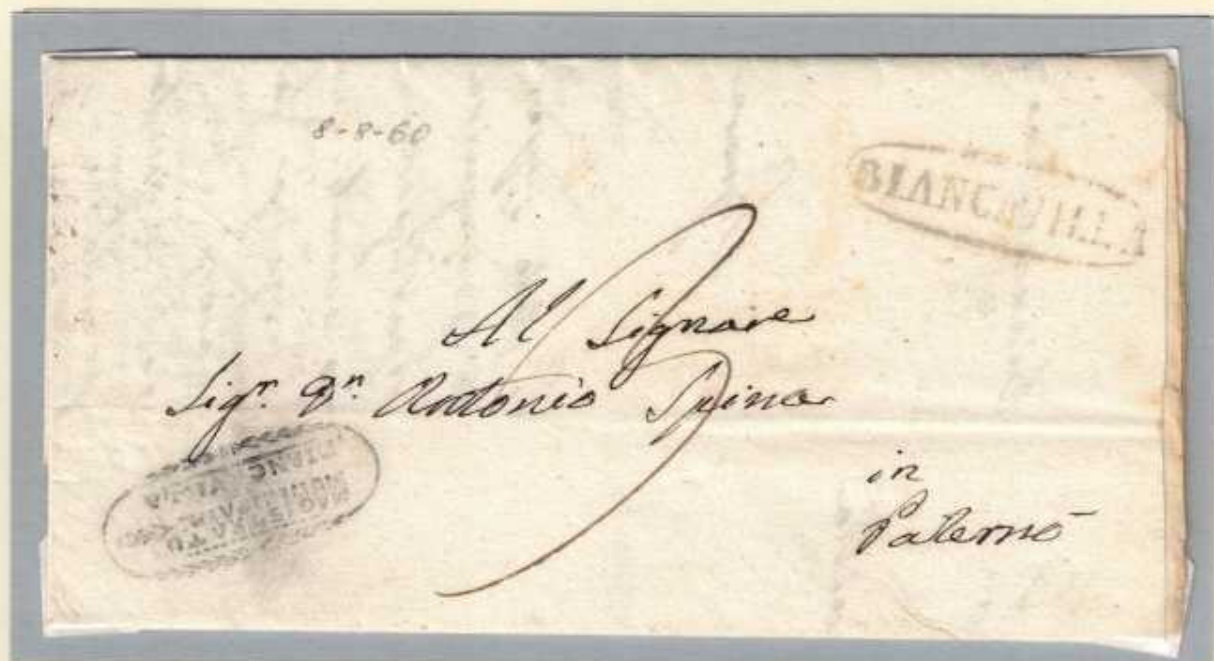 8-8-60
BIANCAVILLA
Al Signore
Sig.r D.n Antonio Spina
in
Paternò